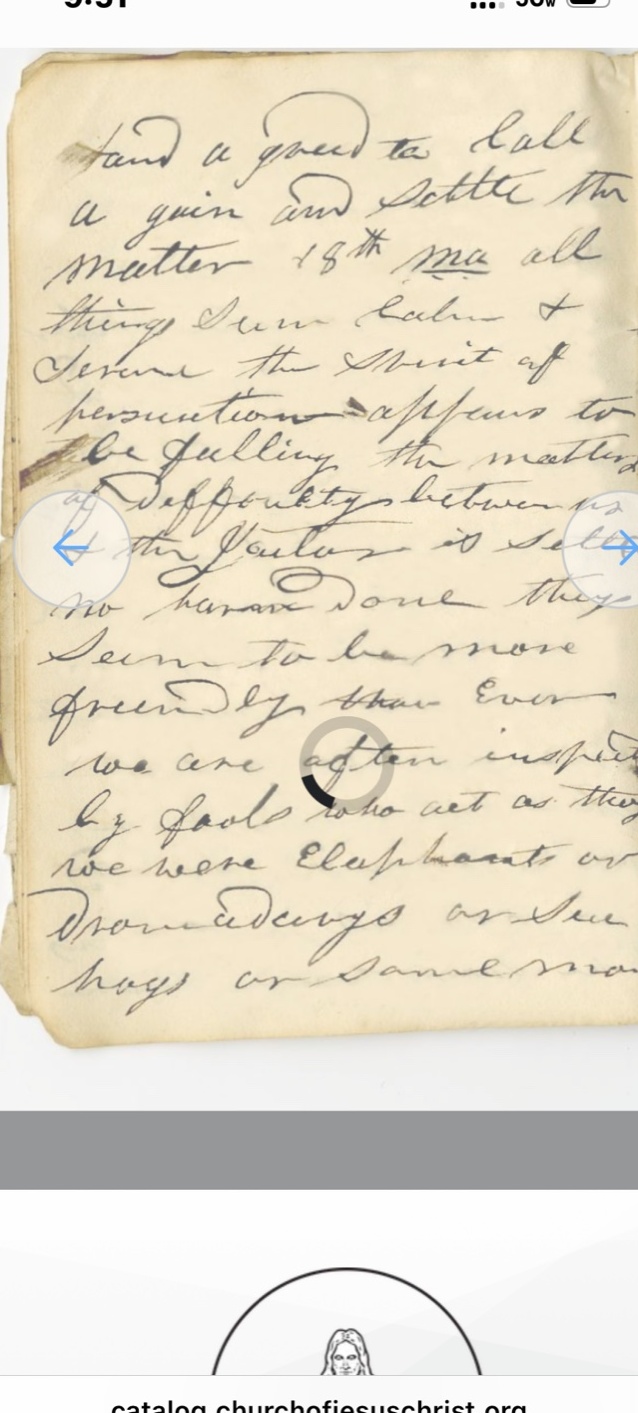 and a greed to Call
a gain and Settle the
matter 18th ma all
things Seem Calm &
Serene the Spirit of
persecution appears to
be falling the matters
of Deffoculty between us
& the Jailor is Settl
no harm Done they
Seem to be more
freindly than Ever
we are often inspect
by fools who act as tho
we were Elephants or
Dromadarys or Sea
hogs or Some mon
catalog.churchofjesuschrist.org